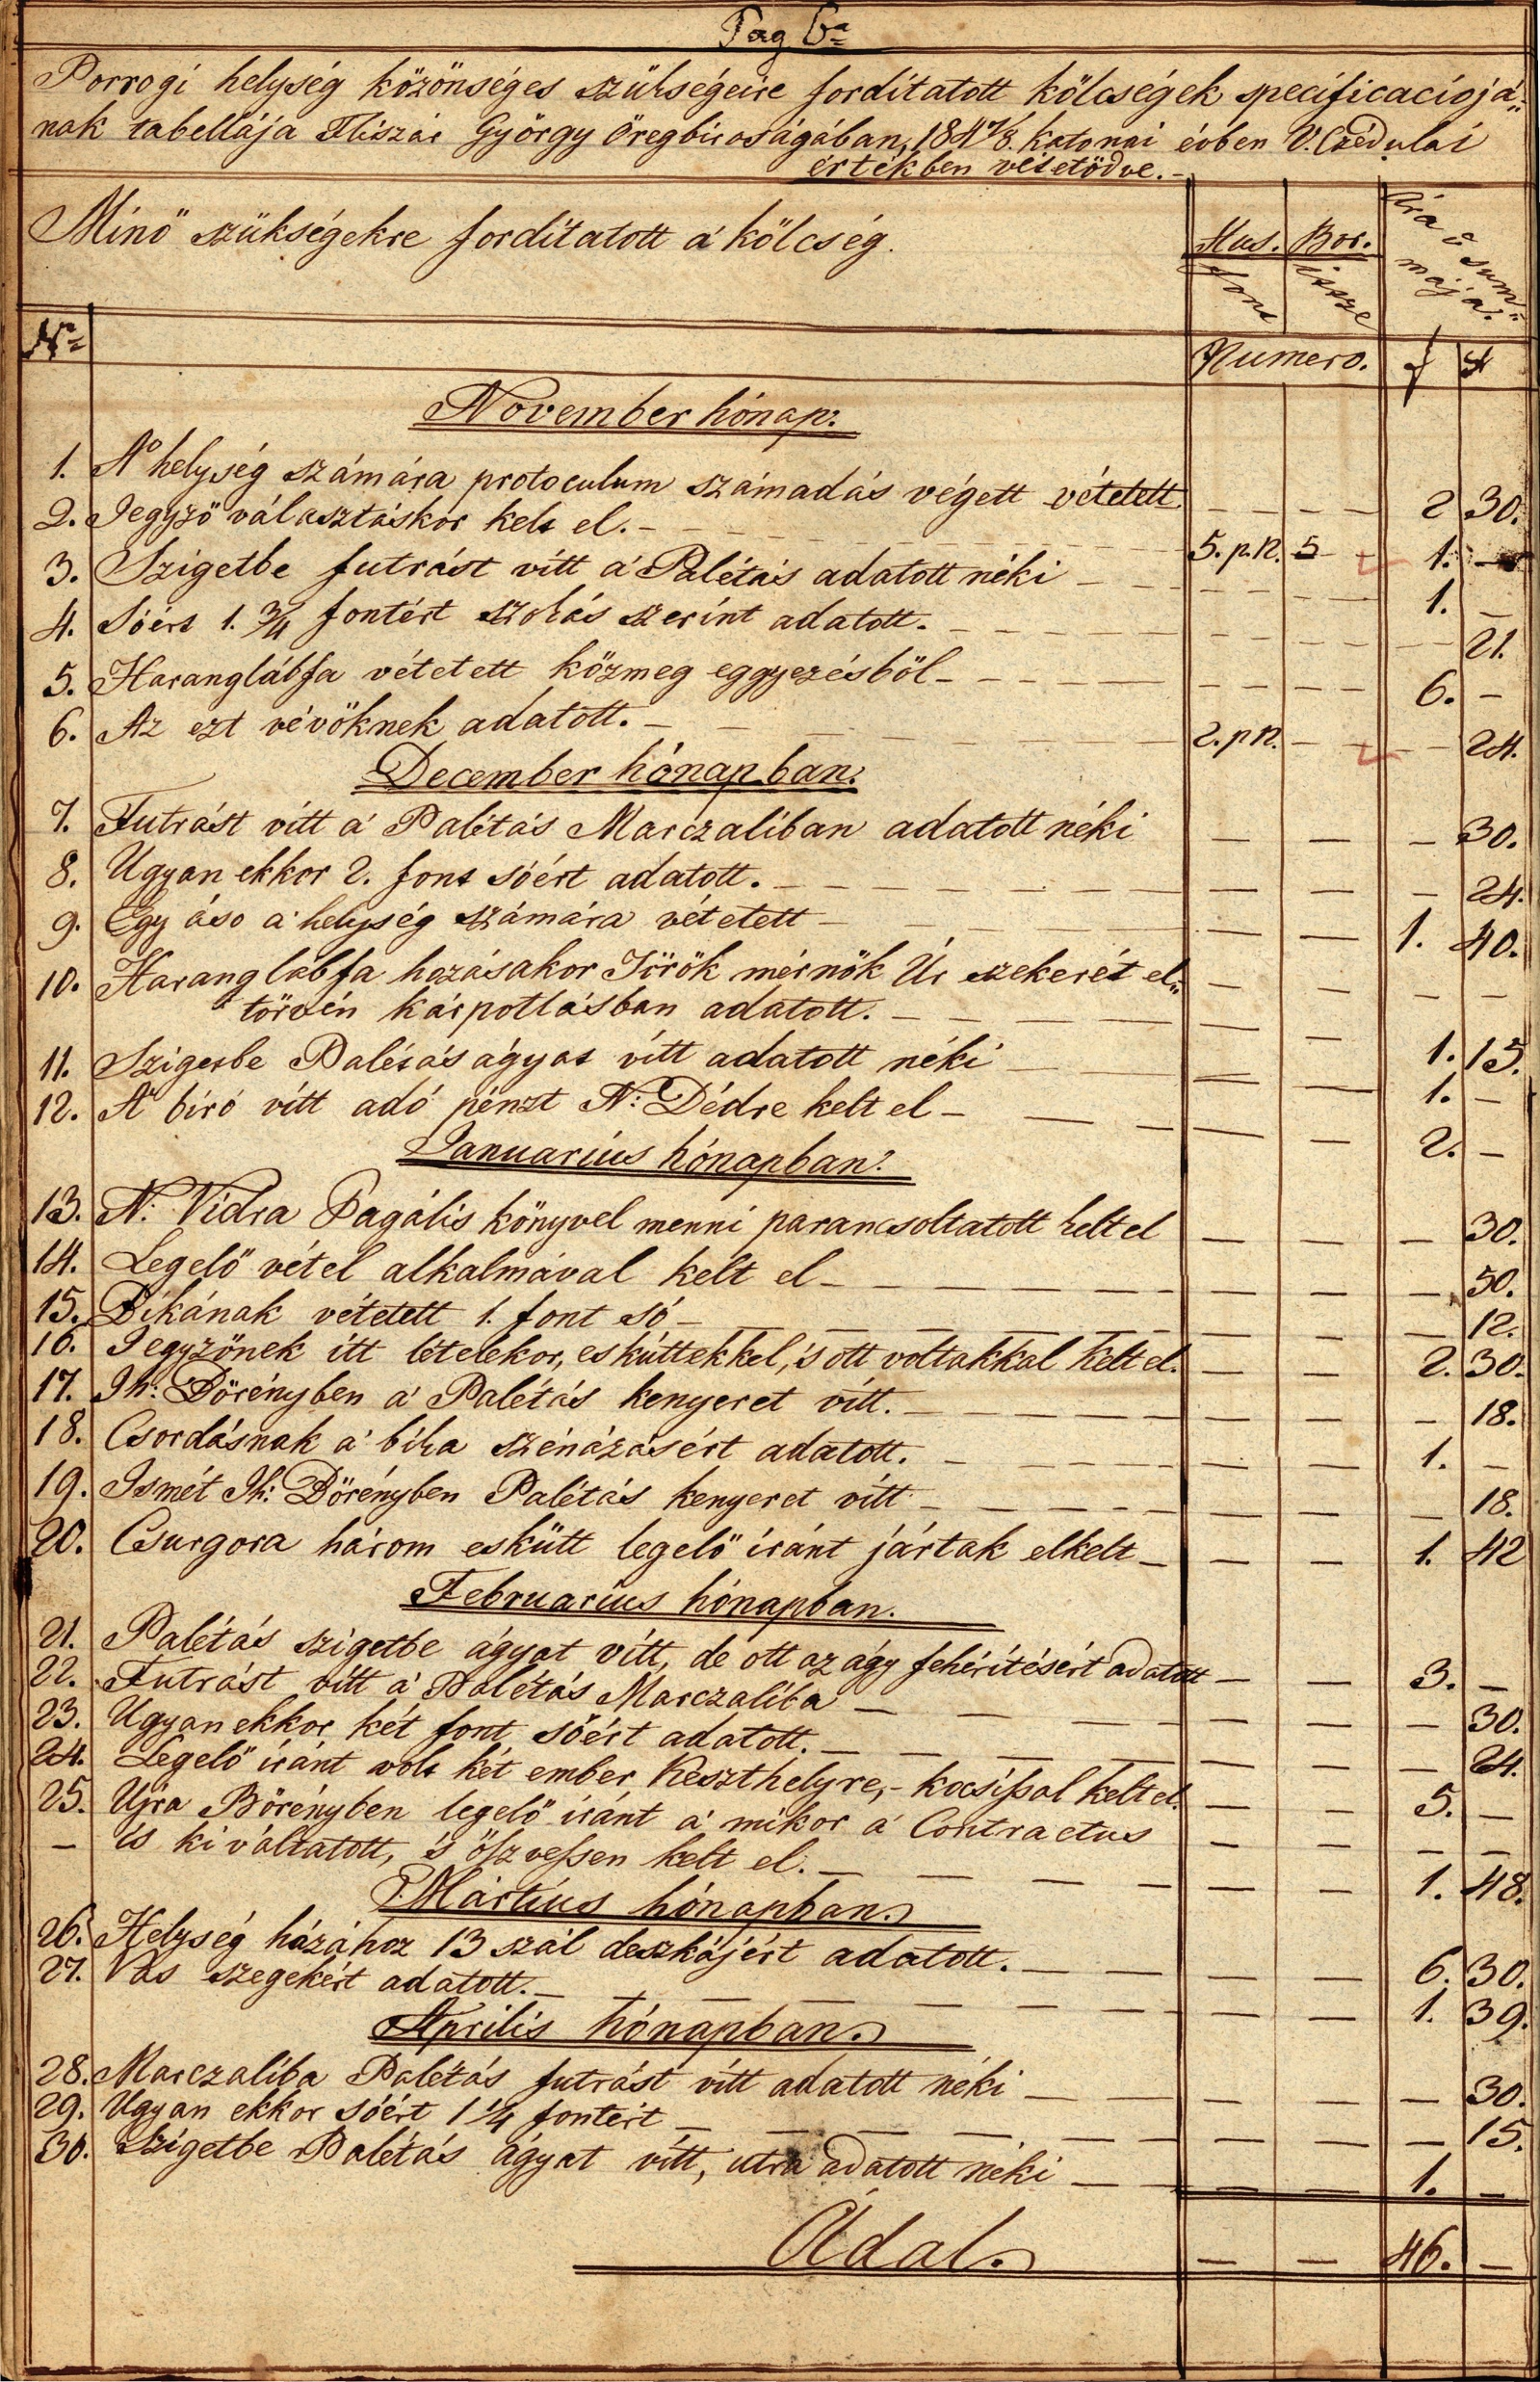 Pag 6a
Porrogi helység közönséges szükségeire fordítatott kölcségek specificaciojá„
nak tabellája Fliszár György öregbiroságában, 1847/8. katonai évben V. Czédulai
értékben vétetődve. –
Minö szükségekre fordítatott a' kölcség.
Hus. Bor. Ára 's
font iccze summája.
No Numero. f x
November hónap:
1. A' helység számára protoculum számadás végett vétetett – – – – 2 30.
2. Jegyző választáskor kelt el. – 5. p.n. 5 1. –
3. Szigetbe futrást vitt a' Palétás adatott néki – – – – 1. –
4. Sóért 1. 3/4 fontért szokás szerint adatott. – – – – 21.
5. Haranglábfa vétetett közmeg eggyezésböl – – – – 6. –
6. Az ezt vévöknek adatott. – 2. p n. – – 24.
December hónapban.
7. Futrást vitt a' Palétás Marczaliban adatott néki – – – 30.
8. Ugyan ekkor 2. font sóért adatott. – – – – 24.
9. Egy áso a' helység számára vétetett – – – 1. 40.
10. Harang lábfa hozásakor Török mérnök Úr szekerét el„ – – – –
törvén kárpotlásban adatott. – – – 1. 15.
11. Szigetbe Palétás ágyat vitt adatott néki – – 1. –
12. A' biró vitt adó pénzt N: Dédre kelt el – – – 2. –
Januarius hónapban.
13. N: Vidra Pagális könyvel menni parancsoltatott kelt el – – – 30.
14. Legelö vétel alkalmával kelt el – – – – 50.
15. Bikának vétetett 1. font só – – – – 12.
16. Jegyzönek itt létekor, esküttekkel, 's ott voltakkal kelt el. – – 2. 30.
17. Ih: Börényben a' Palétás kenyeret vitt. – – – – 18.
18. Csordásnak a' bika szénázasért adatott. – – – 1. –
19. Ismét Ih: Börényben Palétás kenyeret vitt – – – – 18.
20. Csurgora három eskütt legelö iránt jártak elkelt – – – 1. 42
Februarius hónapban.
21. Palétás szigetbe ágyat vitt, de ott az ágy fehérítésért adatott – – 3. –
22. Futrást vitt a' Palétás Marczaliba – – – – 30.
23. Ugyan ekkor két font sóért adatott. – – – – 24.
24. Legelö iránt volt két ember Keszthelyre, – kocsissal kelt el. – – 5. –
25. Ujra Börényben legelö iránt a' mikor a' Contractus – – – –
– is ki váltatott, 's öszvessen kelt el. – – – 1. 48.
Mártius hónapban.
26. Helység házához 13 szál deszkájért adatott. – – – 6. 30.
27. Vas szegekért adatott. – – – 1. 39.
Aprilis hónapban.
28. Marczaliba Palétás futrást vitt adatott néki – – – – 30.
29. Ugyan ekkor sóért 1 1/4 fontért – – – – 15.
30. Szigetbe Palétás ágyat vitt, utra adatott néki – – – 1. –
Adal. – – 46. –